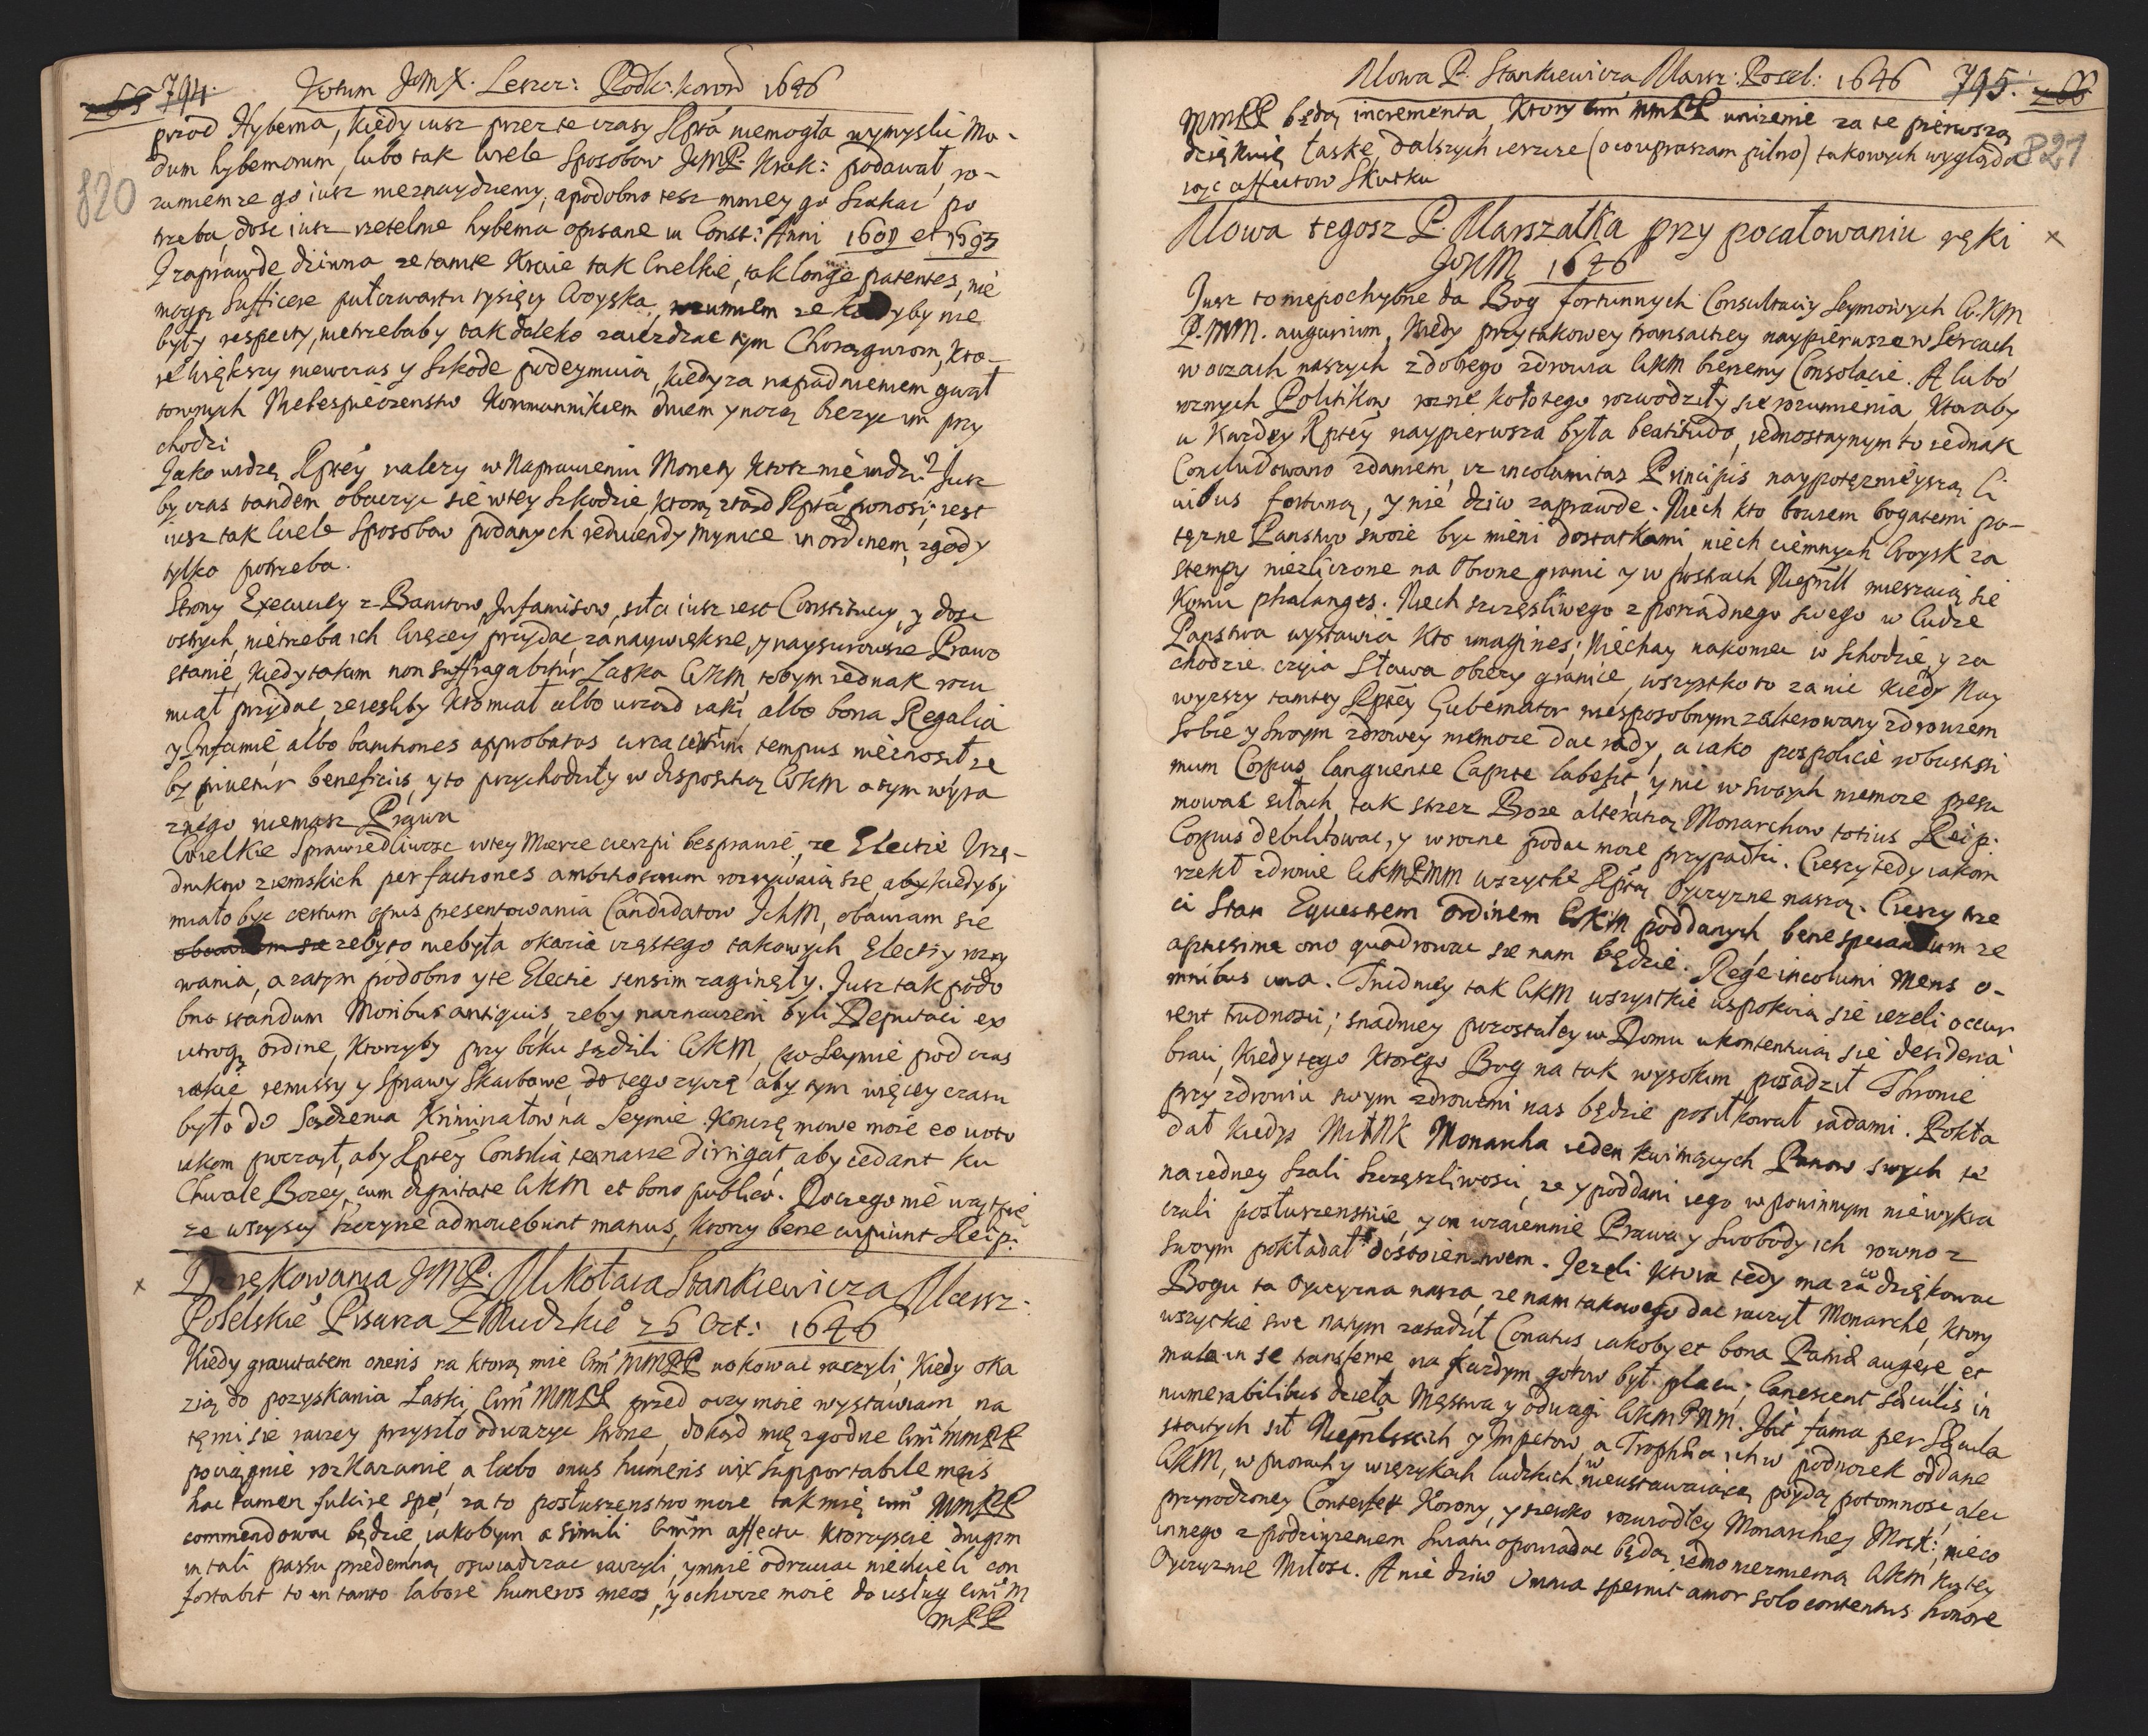 794. Votum JmX. Leszcz: Podk: koron 1646
820
przod Hyberna, kiedy iusz przez te czasy Rptá niemogła wymyslic Mo-
dum hybernorum, lubo tak wiele sposobow JmP. Krak: podawał, ro-
zumiem ze go iusz nieznaydziemy, a podobno tesz mniey go szukac po
trzeba, dosc iusz rzetelnie hyberna opisane in Const: Anni 1609 et 1593
I zaprawde dziwna ze tamte Kraie tak wielkie, tak longe patentes, nie
mogą sufficere pułczwarta tysięcy woyska, rozumiem ze kiedyby nie
były respecty, nietrzebaby tak daleko zaiezdzac tym Chorągwiom, kto-
re większy niewczas y szkode podeymuią, kiedy za napadnieniem gwał
townych Niebespieczenstw Kommunnikiem dniem y nocą biezyc im przy
chodzi
Jako widzę Rptéy nalezy w Naprawieniu Monety ktosz nie widzi? Jusz
by czas tandem obaczyc się w tey szkodzie, ktorą ztąd Rptá ponosi, iest
iusz tak wiele sposobow podanych reducendy mynice in ordinem, zgody
tylko potrzeba.
Strony Executiey z Banitow, Infamisow, siła iusz iest Constitucy, y dosc
ostrych, nietrzeba ich więcey przydac, za naywiększe, y naysurowsze Prawo
stanie, kiedy takim non suffragabitur Łaska WKM, tobym iednak rozu
miał przydac, ze iesliby kto miał albo urząd iaki, albo bona Regalia
y Infamie albo banitiones approbatas circa certum tempus nieznosił ze
by privetur beneficiis, y to przychodziły w dispositią WKM o tym wyra
znego niemasz Prawa
Wielkie sprawiedliwosc w tey mierze cierpi besprawie, ze Electie Urzę-
dnikow ziemskich per factiones ambitiosorum rozrywaią się, aby kiedyby
miało byc certum opus presentowania Candidatow JKM, obawiam sie
zeby to niebyła okazia częstego takowych Electiy rozry
wania, a zatym podobno y te Electie sensim zaginęły. Jusz tak podo
bno standum Moribus antiquis, zeby naznaczeni byli Deputaci ex
utroq ordine, ktorzyby przy boku sądzili WKM, po Seymie pod czas
iakie remissy y sprawy Skarbowe, do tego zyczę aby tym więcey czasu
było do Sądzenia Kriminałow na Seymie. Konczę mowe moie eo voto
iakom począł, aby Rptéy Consilia te nasze dirrigat, aby cedant ku
Chwale Bozey, cum dignitate WKM et bono publico. Do czego nie wątpię
ze wszyscy szczyrze admovebunt manus, ktorzy bene cupiunt Reip:
x Dziękowania JMP: Mikołaia Stankiewicza Marsz:
Poselskie Pisarza Zmudzkie 25 Oct: 1646
Kiedy gravitatem oneris na ktorą mie MMPP wokowac raczyli, kiedy oka
zią do pozyskania Łaski MMPP przed oczy moie wystawiam na
tę mi sie raczey przyszło odwazyc strone, dokąd mię zgodne MMPP
pociągnie rozkazanie a lubo onus humeris vix supportabile meis
hac tamen fulcire spe, za to posłuszenstwo moie tak mię MMPP
commendowac będzie, iakobym a simili affectu ktorzyscie drugim
in tali passu predemną oswiadczac raczyli, y mnie odrzucac niechcieli con
fortabit to in tanto labore humeros meos, y ochocze moie do usług M
MPP
Mowa P. Stankiewicza Marsz: Posel: 1646 795.
821
MMPP będą incrementa, ktory MMPP unizenie za te pierwszą
dziękuię łaskę, dalszych iescze (o co upraszam pilno) takowych wygląda
iąc affectow skutku
Mowa tegosz P. Marszałka przy pocałowaniu ręki x
JoKM 1646
Jusz to niepochybne da Bog fortunnych Consultaciy Seymowych W.KM
P.MM. augurium, kiedy przy takowey transactiey naypierwsze w sercach
w oczach naszych z dobrego zdrowia WKM bierzemy Consolacie. A lubo
roznych Politikow rozne koło tego rozwodziły się rozumienia ktoraby
u kazdey Rptéy naypierwsza była beatitudo, iednostaynym to iednak
Concludowano zdaniem, iz incolumitas Principis naypotęznieyszą ci
uibus fortuną, y nie dziw zaprawde. Niech kto bowiem bogatemi po-
tęzne Panstwo swoie byc mieni dostatkami, niech ciemnych woysk za
stempy niezliczone na Obrone granic y w postrach Nieprzll mieszaią się
komu phalanges. Niech szczęsliwego z porządnego swego w ludzie
Panstwa wystawia kto imagines; Niechay nakoniec w schodzie, y za
chodzie czyia sława obiezy granice, wszystko to zanic kiedy Nay
wyzszy tamtey Rptéy Gubernator niesposobnym zalterowany zdrowiem
sobie y swoym zdrowey niemoze dac rady, a iako pospolicie robustissi
mum Corpus languente Capite labescit, y nie w swoych niemoze presu
mowac siłach, tak strzez Boze alteratią Monarchow totius Reip.
Corpus debilitowac, y w rozne podac moze przypadki. Cieszy tedy iakom
rzekł zdrowie WKMPMM wszystkę Rptą Oyczyzne naszą. Cieszy trze
ci stan Equestrem Ordinem WKM poddanych bene sperandum ze
aptissime ono quadrowac sie nam będzie. Rege incolumi mens o-
mnibus una. Trudniey tak WKM wszystkie uspokoią się iezeli occur
rent trudnosci; snadniey pozostałey w Domu ukontentuią się desideria
braci, kiedy tego ktorego Bog na tak wysokim posadził Thronie
przy zdrowiu swym zdrowemi nas będzie posiłkował radami. Pokła
dał kiedys Monarcha ieden kwitnących Panow swych te
na iedney szali szczęsliwosci, ze y poddani iego w powinnym niewykra
czali posłuszenstwie, y on wzaiemnie Prawa y Swobody ich rowno z
swoym pokładał dostoienstwem. Jezeli ktora tedy ma za co dziękowac
Bogu ta Oyczyzna nasza, ze nam takowego dac raczył Monarchę, ktory
wszystkie swe na tym zasadził Conatus iakoby et bona Patriæ augere, et
mala in se transferre na kazdym gotow był placu; Canescent sæculis in
numerabilibus dzieła Męstwa y odwagi WKMPNM. Ibit fama per sæcula
startych sił Nieprzłskich y Impetow, a Trophæa ich w podnozek oddane
WKM, w piorach y w ięzykach ludzkich nieustawaiącą poydą potomnosc, ale
przyrodzoney Korony, y szeroko rozrodłey Monarchiey Mosk:, nieco
innego z podziwieniem swiatu opowiadac będą iedno niezmierną WKM ku tey
Oyczyznie Miłosc. A nie dziw Omnia spernit amor solo contentus honore